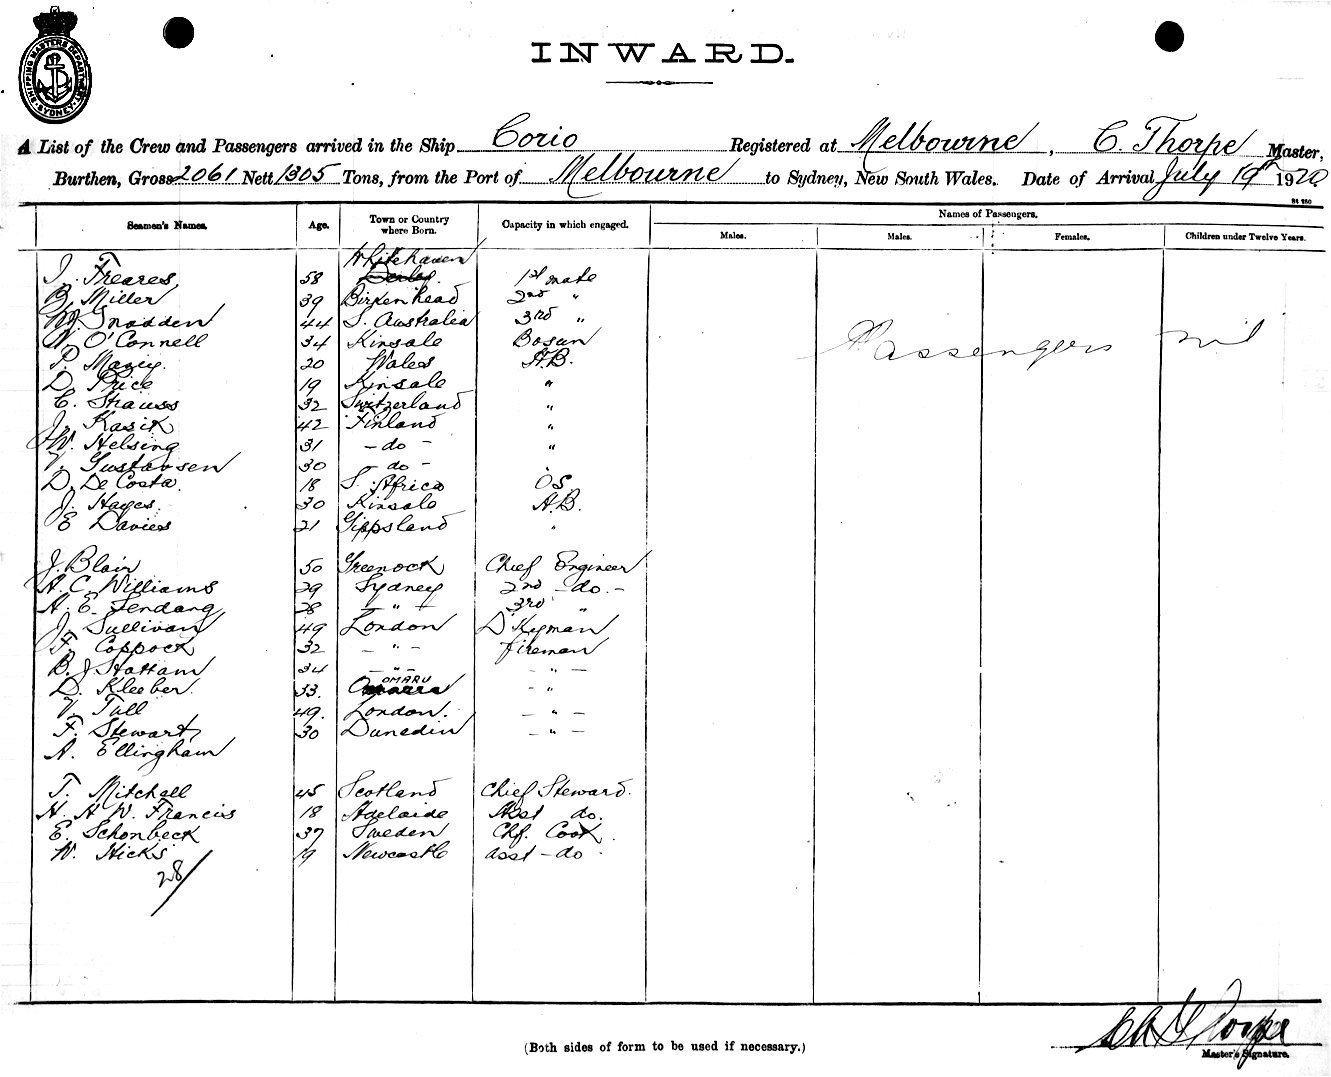 SHIPPING MASTERS DEPARTMENT SYDNEY
INWARD.
A List of the Crew and Passengers arrived in the Ship Corio Registered at Melbourne, C. Thorpe Master,
Burthen, Gross 2061 Nett 1305 Tons, from the Port of Melbourne to Sydney, New South Wales. Date of Arrival July 19th 1920
Seamen's Names. Age. Town or Country where Born. Capacity in which engaged. Names of Passengers.
Males. Males. Females. Children under Twelve Years.
Whitehaven
J. Freares 58 Derby. 1st mate
B. Miller 39 Birkenhead 2nd "
W. Snadden 44 S. Australia 3rd "
W. O'Connell 34 Kinsale Bosun
Passengers nil
P. Maney. 20 Wales A.B.
D. Price 19 Kinsale "
C. Strauss 32 Switzerland "
J. Kasik 42 Finland "
W. Helsing 31 - do - "
V. Gustavsen 30 - do - "
D. De Costa. 18 S. Africa O.S.
J. Hayes. 30 Kinsale A.B.
E Davies 21 Gippsland "
J. Blair 50 Greenock Chief Engineer
A. C. Williams 29 Sydney 2nd - do. -
A. E. Lendang 28 - " - 3rd "
J. Sullivan 49 London D'Keyman
F. Coppock 32 - " - fireman
B. J. Stattam 34 - " - - " -
D. Kleober. 33. OMARU - "
V. Tull 49. London. - " -
F. Stewart 30 Dunedin - " -
A. Ellingham
T. Mitchell 45 Scotland Chief Steward.
H. H. W. Francis 18 Adelaide Asst do.
E. Schonbeck 37 Sweden Chf. Cook
W. Hicks 19 Newcastle asst - do
28/
(Both sides of form to be used if necessary.)
Master's Signature.